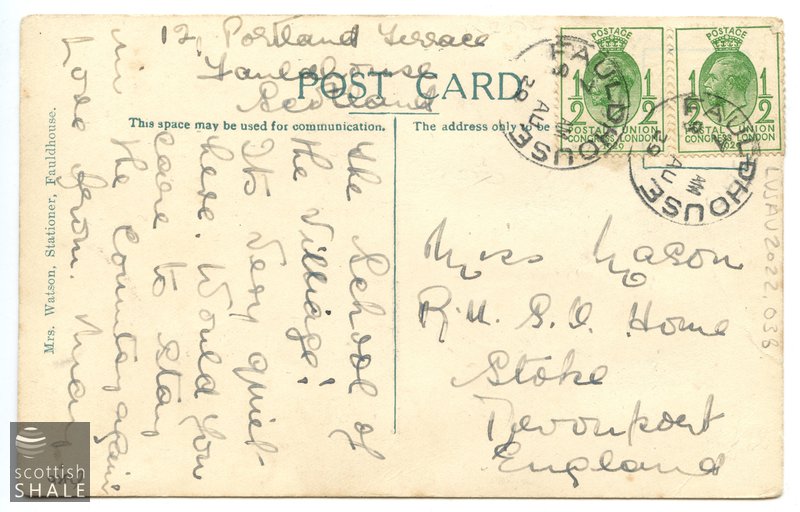 12, Portland Terrace
Fauldhouse
Scotland
POST CARD
This space may be used for communication.
The address only to be
the School of
the Villiage!
Its very quiet
here. Would you
care to stay
in the Country again
Love from. Mary
Miss Mason
R.N. S.O. Home
Stoke
Devonport
England
Mrs. Watson, Stationer, Fauldhouse.
POSTAGE
1/2 1/2
POSTAL UNION
CONGRESS LONDON
1929
POSTAGE
1/2 1/2
POSTAL UNION
CONGRESS LONDON
1929
FAULDHOUSE
AM
AU
29
FAULDHOUSE
AM
AU
29
LVSAV2022.038
scottish
SHALE